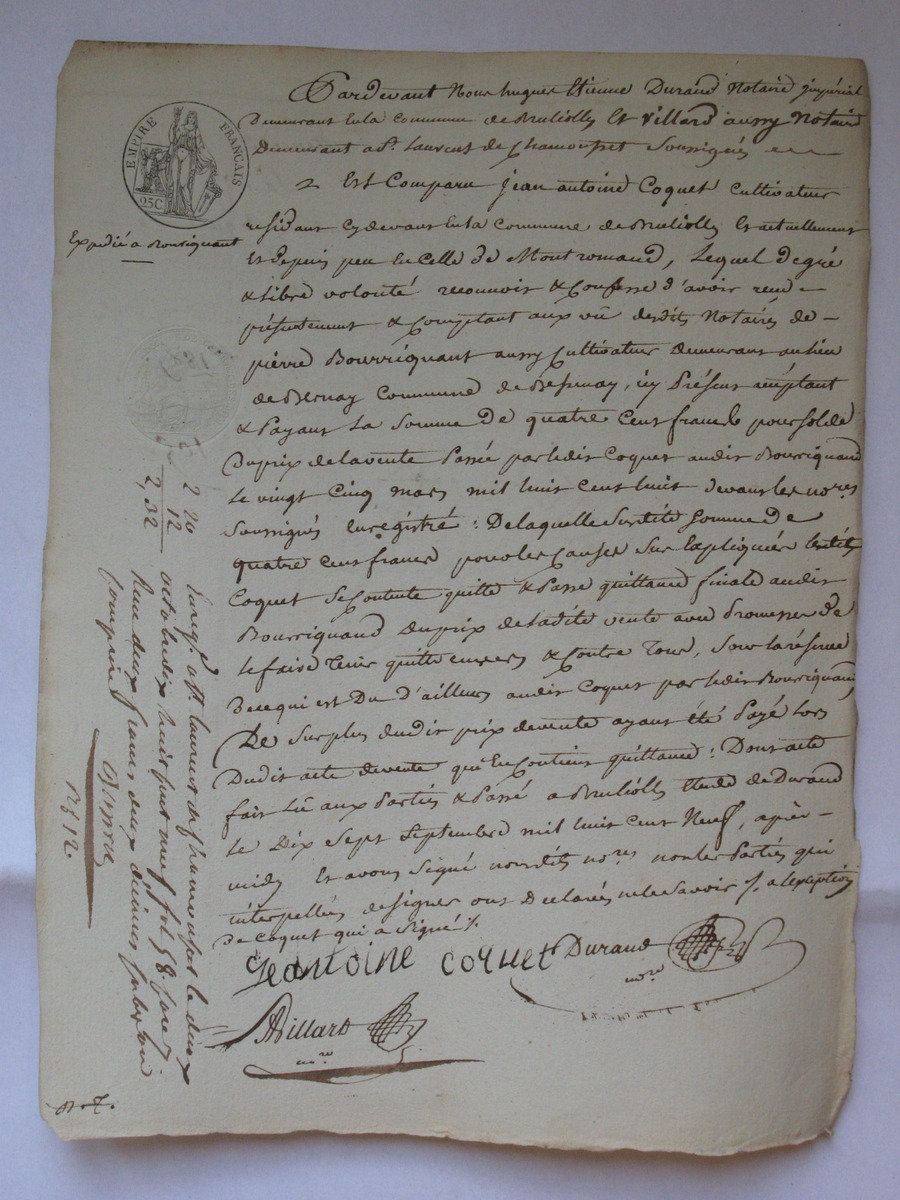 Pardevant Nous hugues Etienne Durand Notaire jmpérial
Demeurant En la Commune de Brulliolles Et Villard aussy Notaire
Demeurant a St. Laurent de Chamousset Soussignés
Est Comparu jean antoine Coquet Cultivateur
résidant cydevant En la Commune de Brulliolles Et actuellement
Et depuis peu En Celle de Montromand, Lequel de gré
& Libre volonté reconnoit & Confesse d'avoir
présentement & Comptant aux vû desdits Notaires de
pierre Bourriquant aussy Cultivateur demeurant au lieu
de Bernay Commune de Bessenay, icy Présent
& Payant La Somme De quatre Cent francs pour solde
Du prix de la vente Passée par ledit Coquet audit Bourriquand
Le vingt Cinq mars mil huit Cent huit devant les nores
Soussignés Enregistré : De laquelle Susdite Somme de
quatre Cent francs pour les Causes Sus Expliquées ledit
Coquet Se Contente quitte & Passe quittance finale audit
Bourriquand Du prix de ladite vente avec Promesse De
le faire Tenir quitte envers & Contre Tous, Sous la réserve
De ce qui est Du d'ailleurs audit Coquet par ledit Bourriquand
Le Surplus dudit prix de vente ayant été Payé Lors
Dudit acte de vente qui En Contient quittance : Dont acte
fait Lu aux Parties & Passé a Brulliolles Etude de Durand
Le Dix Sept Septembre mil huit Cent Neuf, après
midy Et avons Signé nousdits nores non les Parties qui
interpellées de signer ont Déclaré ne le Savoir /. a l'exception
De Coquet qui a Signé /.
Jeantoine Coquet
Durand
nore
Villard
nore
EMPIRE FRANÇAIS
25C
Expédié a Bourriquant
2 20
12
2,32
Enregt. a St. laurent de Chamousset le deux
octobre dix huit cent neuf fol 58
Reçu deux francs deux décimes
Compris